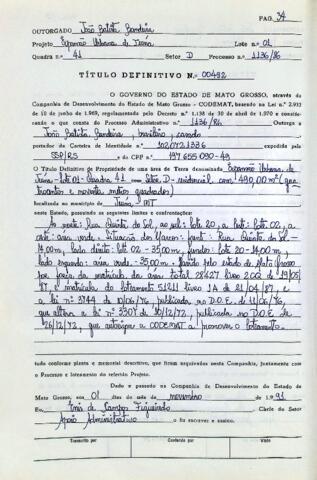 PAG. 34
OUTORGADO João Batista Bandeira
Projeto Expansão Urbana de Juína Lote n.o 01
Quadra n.o 41 Setor D Processo n.o 1136/86
TÍTULO DEFINITIVO N.o 00492
O GOVERNO DO ESTADO DE MATO GROSSO, através da
Companhia de Desenvolvimento do Estado de Mato Grosso - CODEMAT, baseado na Lei n.o 2.932
de 10 de junho de 1969, regulamentado pelo Decreto n.o 1.138 de 30 de abril de 1970 e considerando
o que consta do Processo Administrativo n.o 1136/86 Outorga a
João Batista Bandeira, brasileiro, casado
portador da Carteira de Identidade n.o 3020721386
SSP/RS e do CPF n.o 197 655 090-49
O Título Definitivo de Propriedade de uma área de Terra denominada Expansão Urbana de
Juína - lote 01 - Quadra 41 - Setor D - residencial, com 490,00 m² (quatrocentos
e noventa metros quadrados)
localizada no município de Juína MT
neste Estado, possuindo os seguintes limites e confrontações:
Ao norte: Rua do Sol, ao sul: lote 20, a leste: lote 02, a
oeste: área verde - frente - Rua do Sol
14,00 m, lado direito: lote 02 - 35,00m, fundos: lote 20 - 14,00 m,
lado esquerdo: área verde - 35,00m - pelo Estado de Mato Grosso
por força da matrícula da área total 28427 livro 2 de 19/05
87, e matrícula do loteamento 51211 livro 1A de 21/04/87, e
a lei nº 3744 de 10/06/76, publicada no D.O.E. de 11/06/76,
que altera a lei nº 3307 de /12/72, publicada no D.O.E. de
26/12/72, que autoriza a CODEMAT a promover o loteamento.
tudo conforme planta e memorial descritivo, que ficam arquivados nesta Companhia, juntamente com
o Processo e Intimação do referido Projeto.
Dado e passado na Companhia de Desenvolvimento do Estado de
Mato Grosso, aos 01 do mês de novembro de 1.991
Eu, de Campos Figueiredo Chefe do Setor
Apoio Administrativo o fiz escrever e assino.
Transcrito por Conferido por Visto